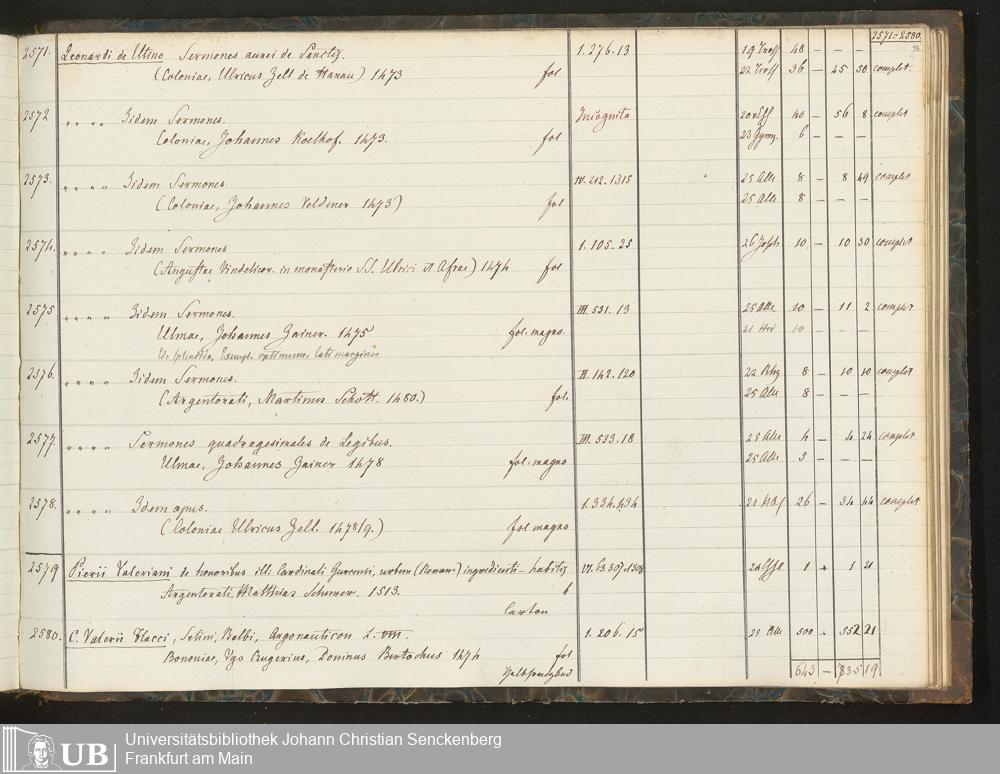 2571-2580.
2571. Leonardi de Utino Sermones aurei de Sanctis. 1.276.13 48 — — —
(Coloniae, Ulricus Zell de Hanau) 1473 fol 36 — 45 50 complet.
2572 " " " " Iidem Sermones. Incognita 40 — 56 8 complet
Coloniae, Johannes Koelhof. 1473. fol 6 — — —
2573. " " " " Iidem Sermones. IV. 212. 1315 25 Alle 8 — 8 49 complet
(Coloniae, Johannes Veldener 1473) fol 25 Alle 8 — — —
2574. " " " " Iidem Sermones 1. 105. 25 10 — 10 30 complet
(Augustae Vindelicor. in monasterio S.S. Ulrici et Afrae) 1474 fol
2575 " " " " Iidem Sermones. III. 531. 13 25 Alle 10 — 11 2 complet
Ulmae, Johannes Zainer. 1475 fol. magno. 10 — — —
Ed. splendida, Exempl. optimum, lati marginis
2576. " " " " Iidem Sermones. II. 142. 120 8 — 10 10 complet
(Argentorati, Martinus Schott. 1480.) fol. 25 Alle 8 — — —
2577. " " " " Sermones quadragesimales de Legibus. III. 533. 18 25 Alle 4 — 4 24 complet
Ulmae, Johannes Zainer 1478 fol. magno 25 Alle 5 — — —
2578. " " " " Idem opus. 1. 334. 434 26 — 34 44 complet
(Coloniae Ulricus Zell. 1478/9.) fol magno
2579 Pierii Valeriani de honoribus ill. Cardinali Gurcensi, urbem (Romam) ingredienti — habitis VI. 63. 307. 1308 1 1 21
Argentorati, Matthias Schurer. 1513. 4
Carton
2580. C. Valerii Flacci, Setini, Balbi, Argonauticon L. VIII. 1. 206. 15 500 552 21
Bononiae, Ugo Rugerius, Doninus Bertochus 1474 fol
643 — 835 19
Universitätsbibliothek Johann Christian Senckenberg
Frankfurt am Main
UB